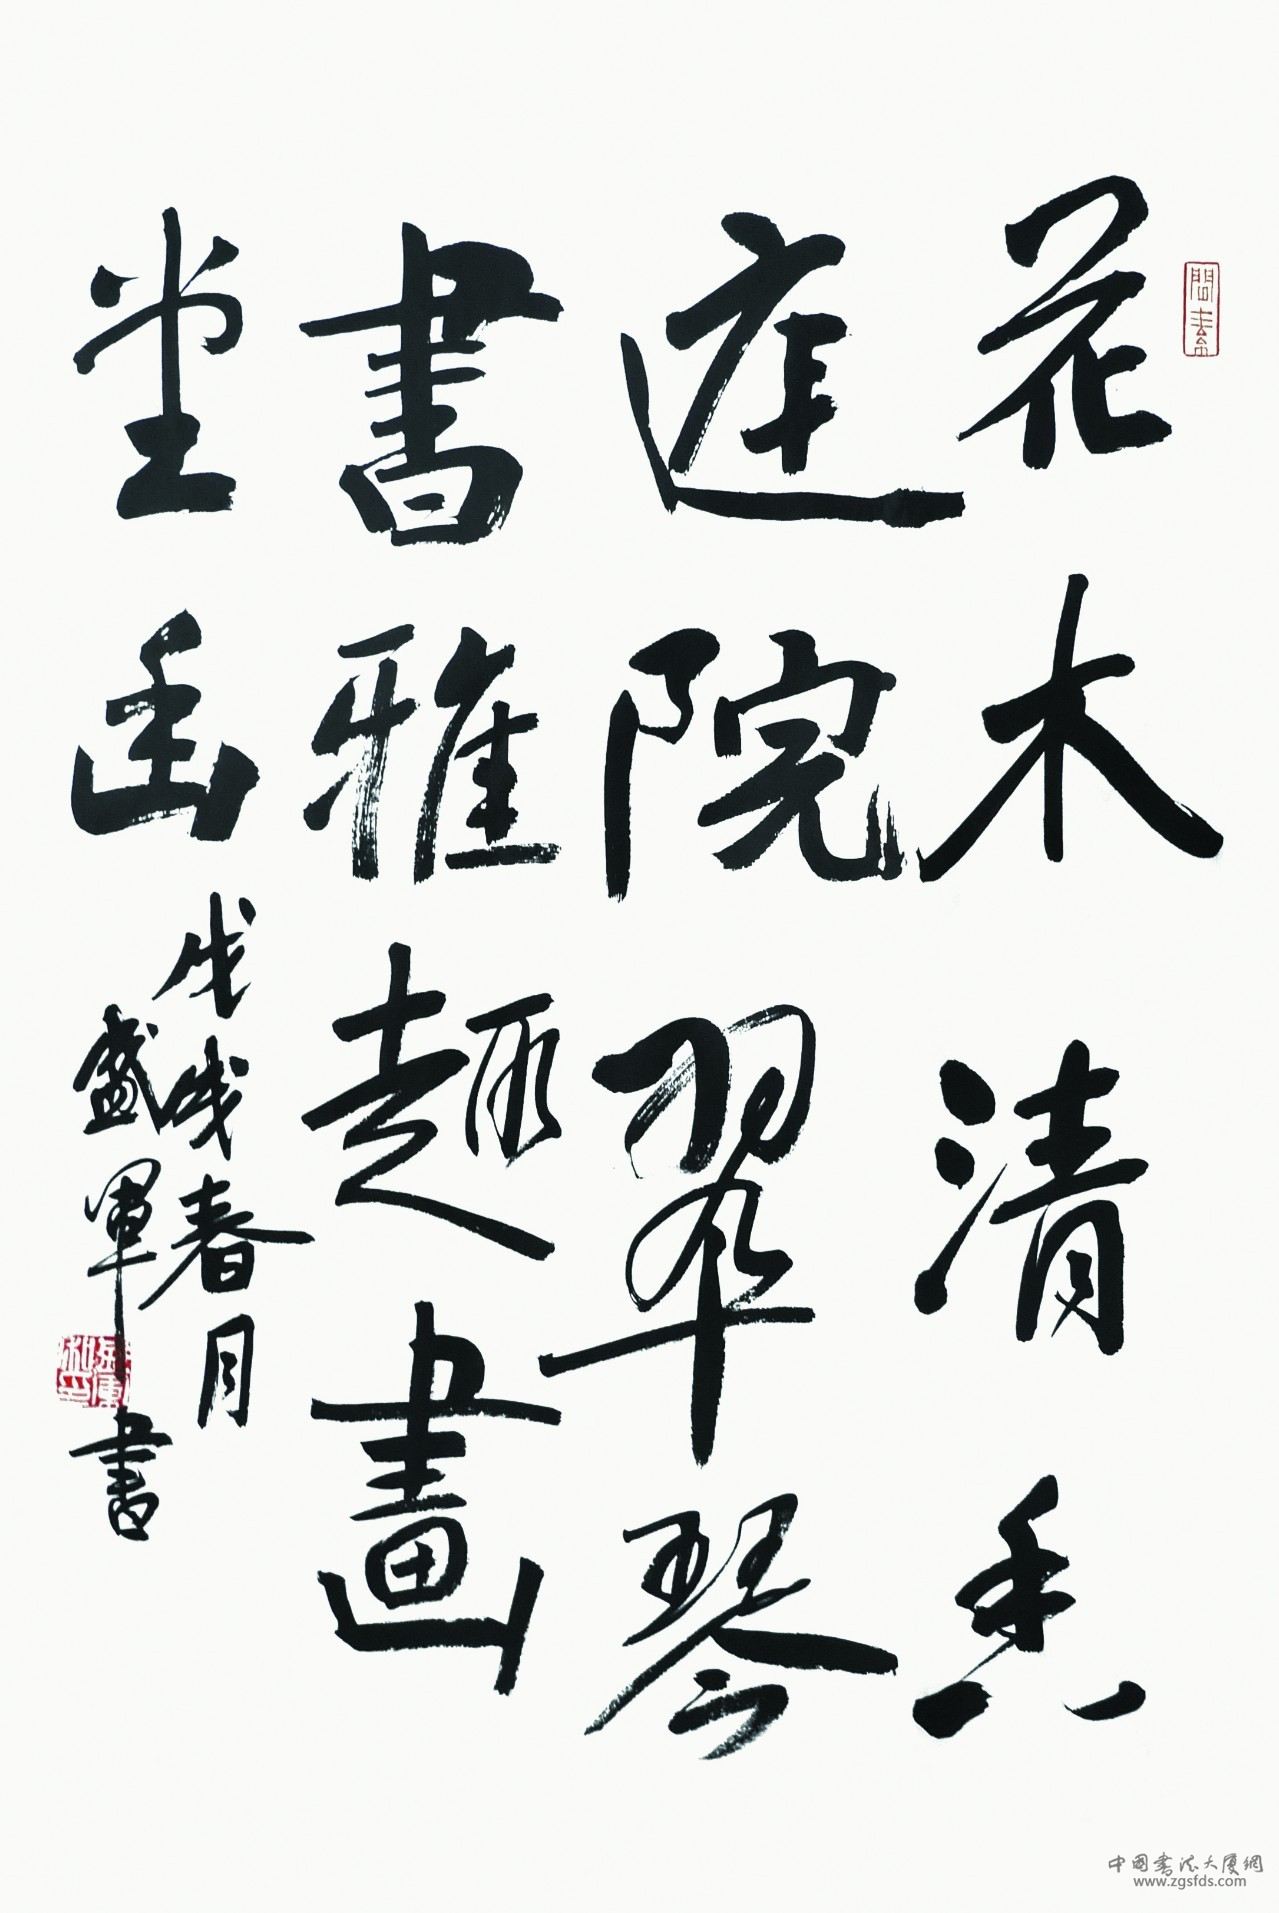 花木清香
庭院翠琴
書雅趣畫
堂幽
戊戌春月
盛軍書
中国书法大厦網
www.zgsfds.com